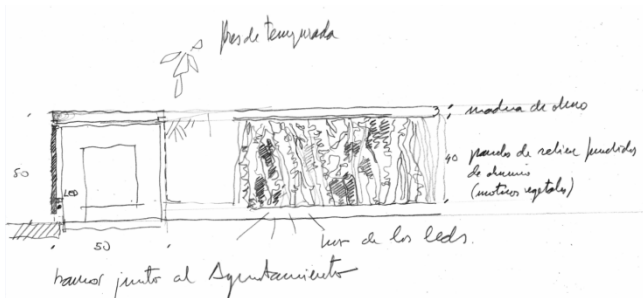 flores de temporada
madera de olmo
50
40 paneles de relieve fundidos
de aluminio
(motivos vegetales)
LED
50
luz de los leds.
bancos junto al Ayuntamiento